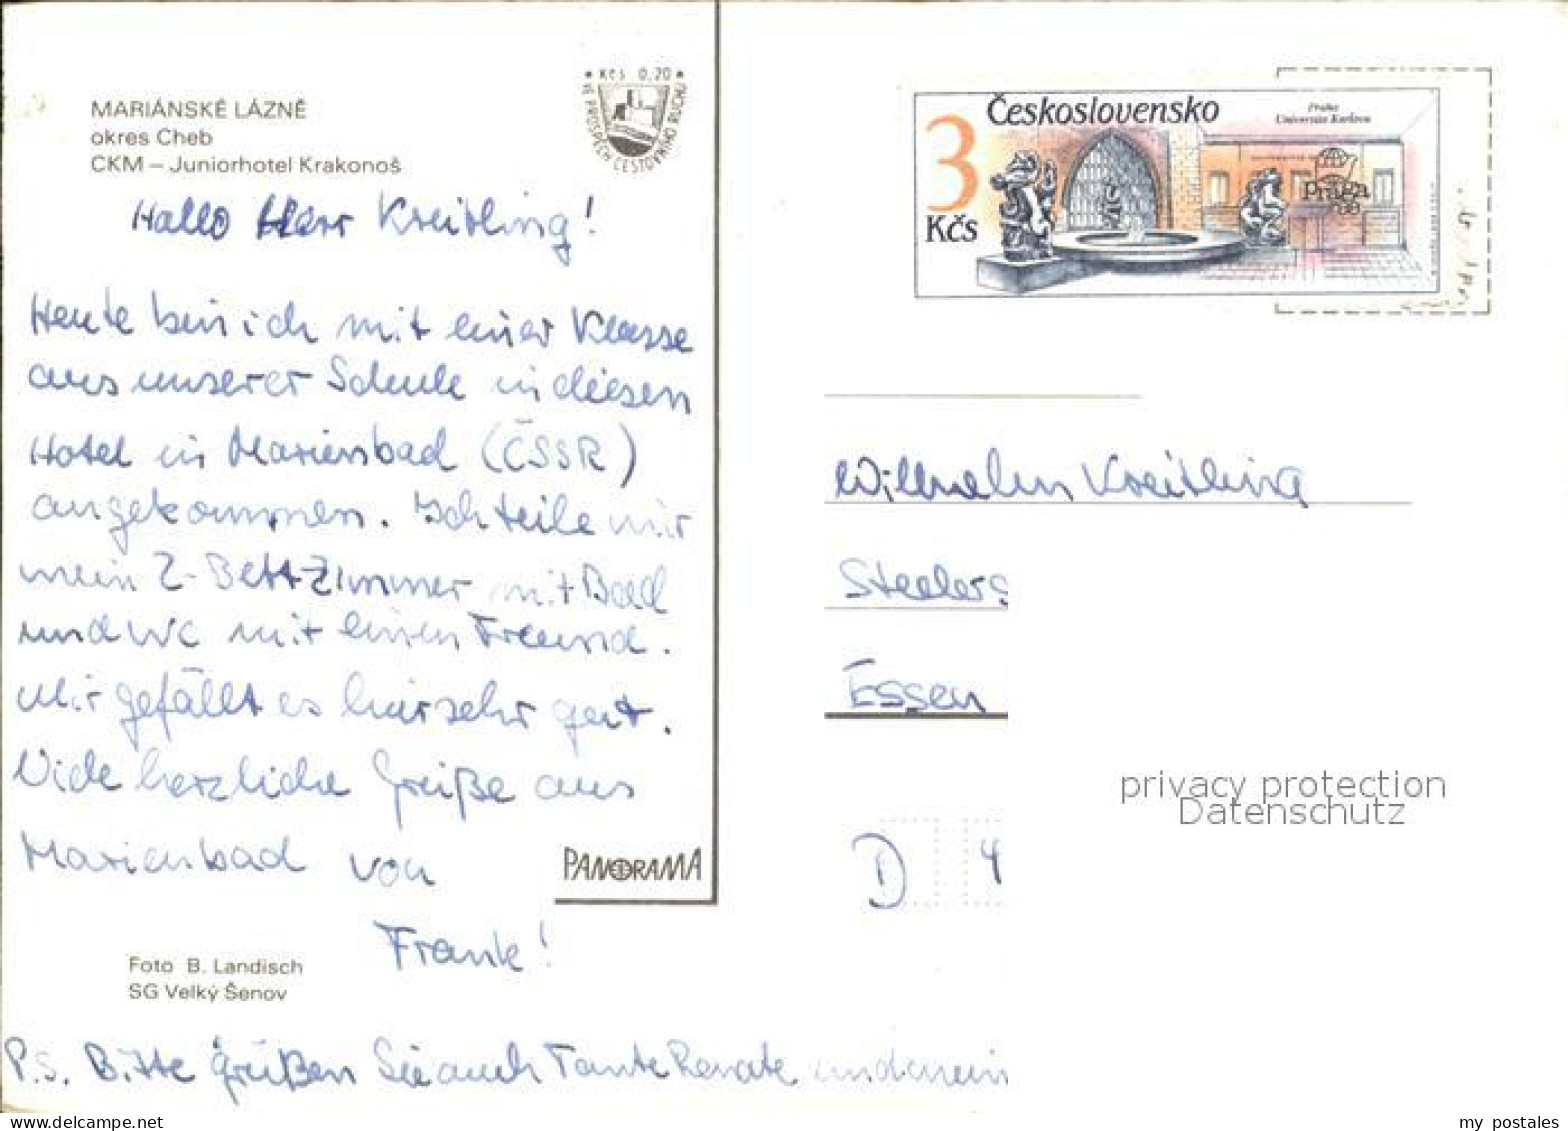 MARIÁNSKÉ LÁZNĚ
okres Cheb
CKM – Juniorhotel Krakonoš
* Kčs 0,20 *
VE PROSPĚCH CESTOVNÍHO RUCHU
Hallo Herr Kreitling!
Heute bin ich mit einer Klasse
aus unserer Schule in diesen
Hotel in Marienbad (ČSSR)
angekommen. Ich teile mir
mein 2-Bett-Zimmer mit Bad
und WC mit einen Freund.
Mir gefällt es hier sehr gut.
Viele herzliche Grüße aus
Marienbad von
Frank!
PANORAMA
Foto B. Landisch
SG Velký Šenov
P.S. Bitte grüßen Sie auch Tante Renate und mein
Československo
Praha
Universita Karlova
3
Kčs
Praga
88
Wilhelm Kreitling
Steelers
Essen
D 4
privacy protection
Datenschutz
my postales